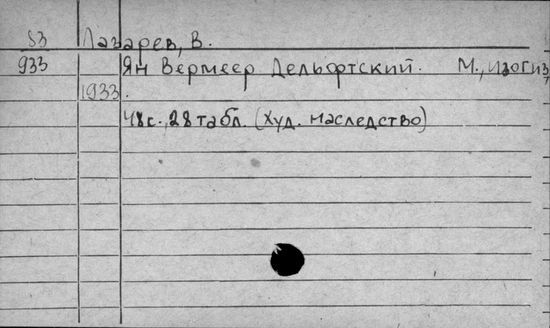 53 Лазарев, В.
933 Ян Вермеер Дельфтский. М., Изогиз,
1933.
48 с., 28 табл. (Худ. наследство)